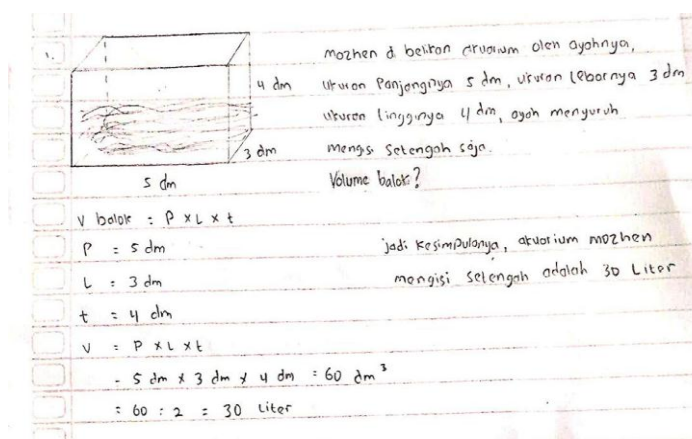 1.
mozhen di belikan akuarium oleh ayahnya,
ukuran Panjangnya 5 dm, ukuran lebarnya 3 dm
ukuran tingginya 4 dm, ayah menyuruh
mengisi setengah saja.
Volume balok?
4 dm
3 dm
5 dm
V balok : P x L x t
P = 5 dm
L : 3 dm
t = 4 dm
V = P x L x t
- 5 dm x 3 dm x 4 dm = 60 dm³
= 60 : 2 = 30 Liter
jadi kesimpulanya, akuarium mozhen
mengisi setengah adalah 30 Liter